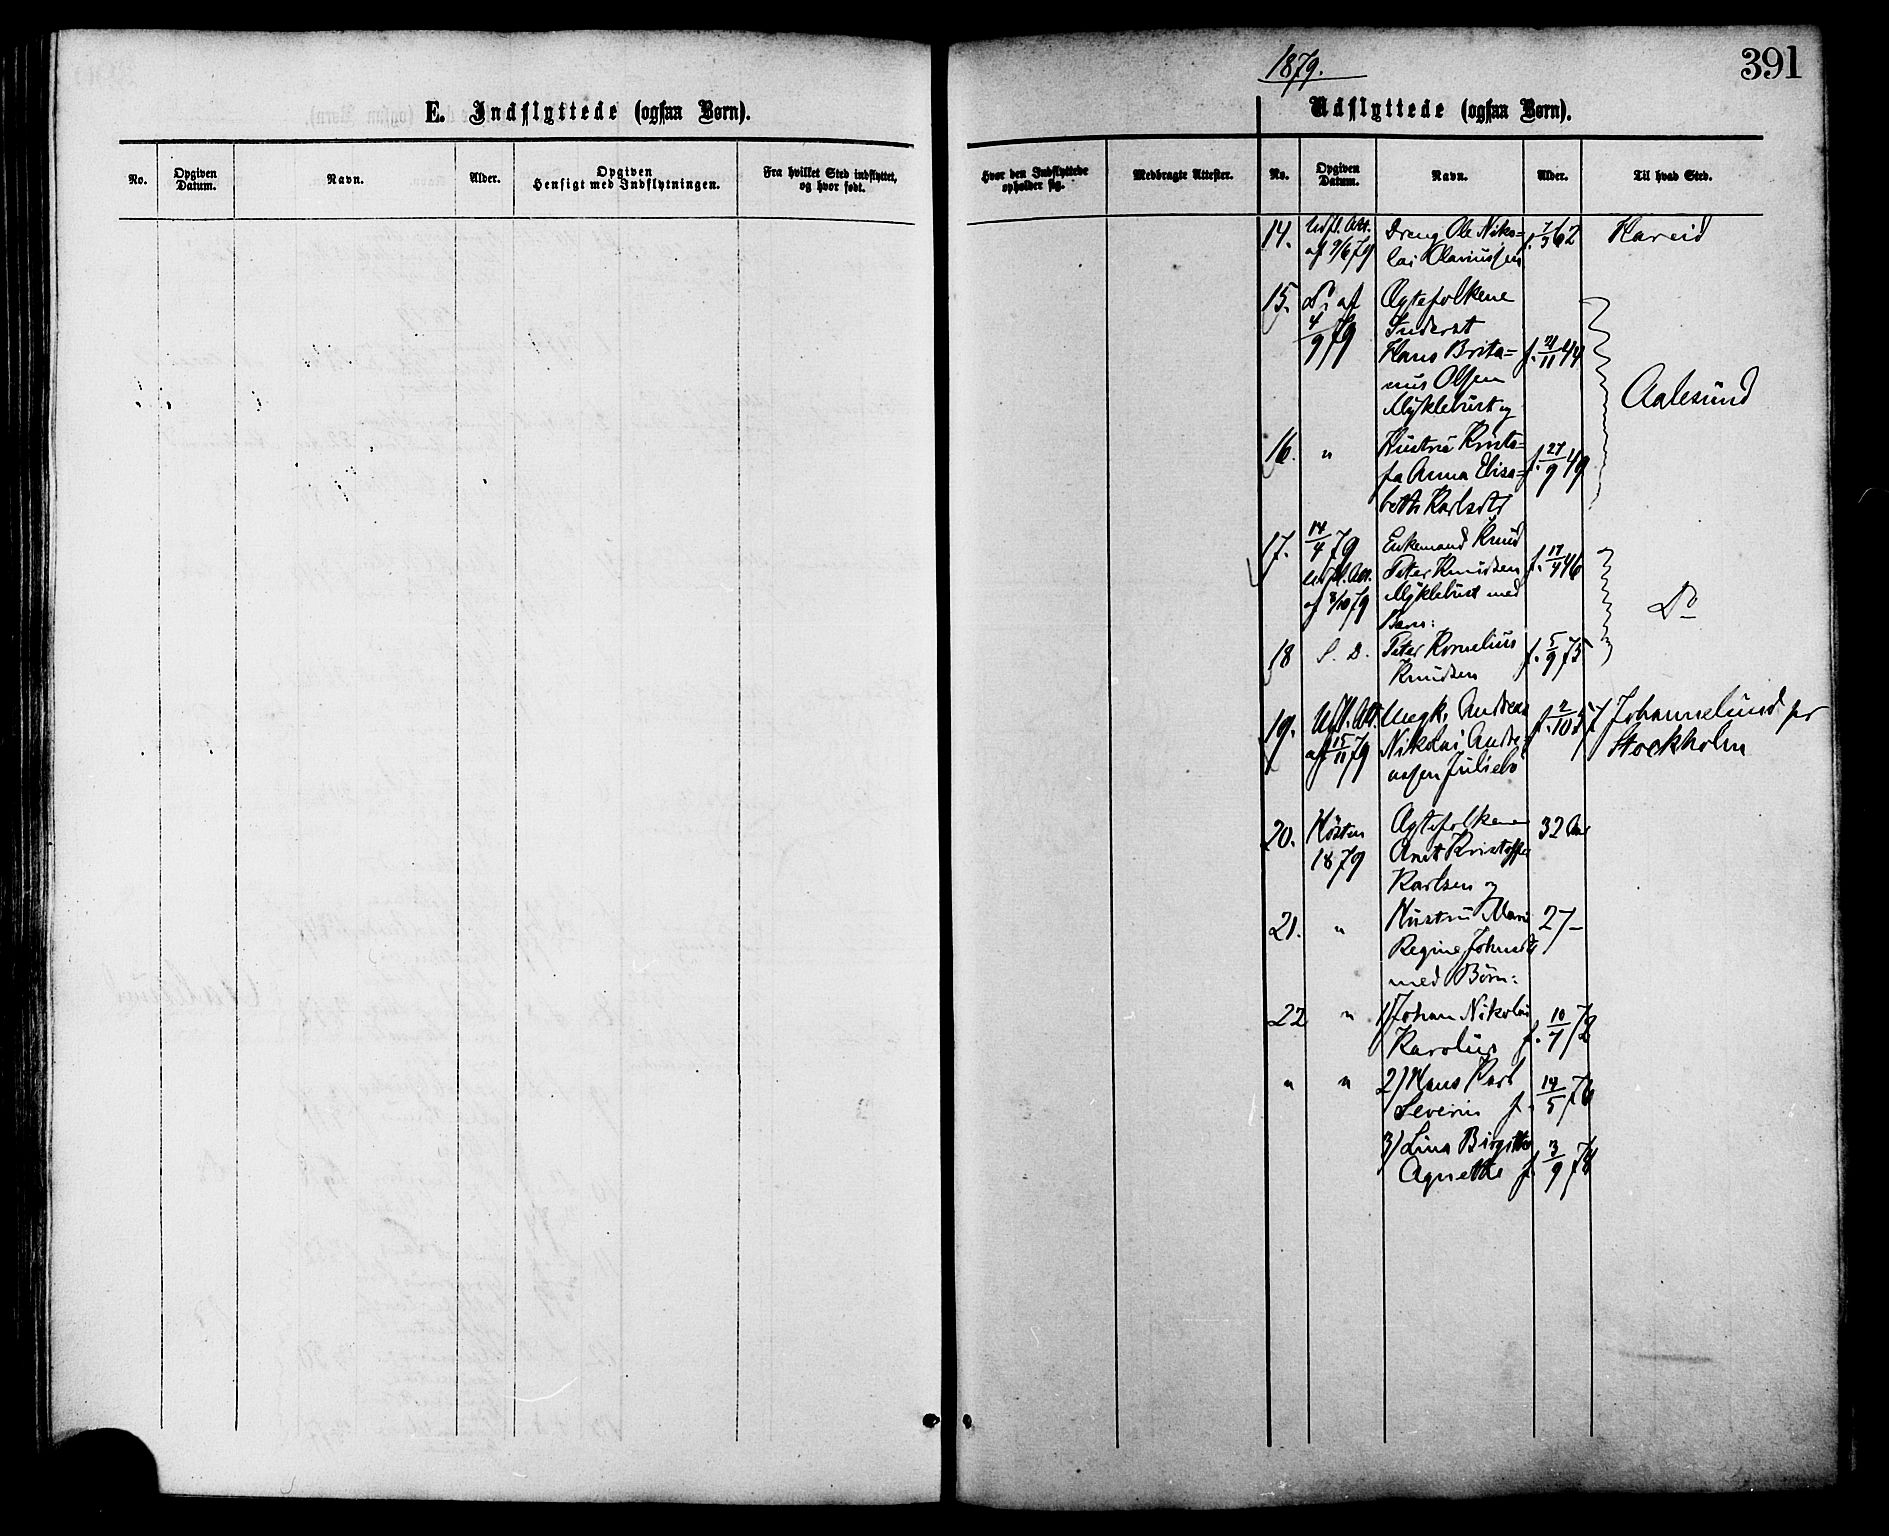 391
1879.
E. Indflyttede (ogsaa Børn).
Udflyttede (ogsaa Børn).
No.
Opgiven Datum.
Navn.
Alder.
Opgiven Hensigt med Indflytningen.
Fra hvilket Sted indflyttet, og hvor født.
Hvor den Indflyttede opholder sig.
Medbragte Attester.
No.
Opgiven Datum.
Navn.
Alder.
Til hvad Sted.
14. Udfl. Att. Dreng Ole Niko= f. 62 Hareid
af 9/6 79 lai Klariussen
15. Do af Ægtefolkene
4/9 79 Inderst
Hans Brita= f. 21/11 44
nus Olsen Aalesund
Myklebust og
16. " Hustru Krista= f. 27/9 49
fa Anna Elisa=
beth Karlsdtr
17. 14/4 79 Enkemand Knud f. 17/4 46
Udfl. Att. Peter Knudsen
af 8/10 79 Myklebust med Do
Barn:
18 S. D. Peter Kornelius f. 5/9 75
Knudsen
19. Udfl. Att. Ungk. Andreas f. 2/10 57 Johannelund pr
af 15/11 79 Nikolai Andre= Stockholm
assen Juliebø
20. Høsten Ægtefolkene 32 Aar
1879 Anet Kristoffer
Karlsen og
21. " Hustru Marie 27 –
Regine Johnsdtr
med Børn:
22 " 1) Johan Nikolai
Karolius f. 10/7 72
" " 2) Hans Karl
Severin f. 14/5 76
3) Lina Birgitte
Agnethe f. 3/9 78